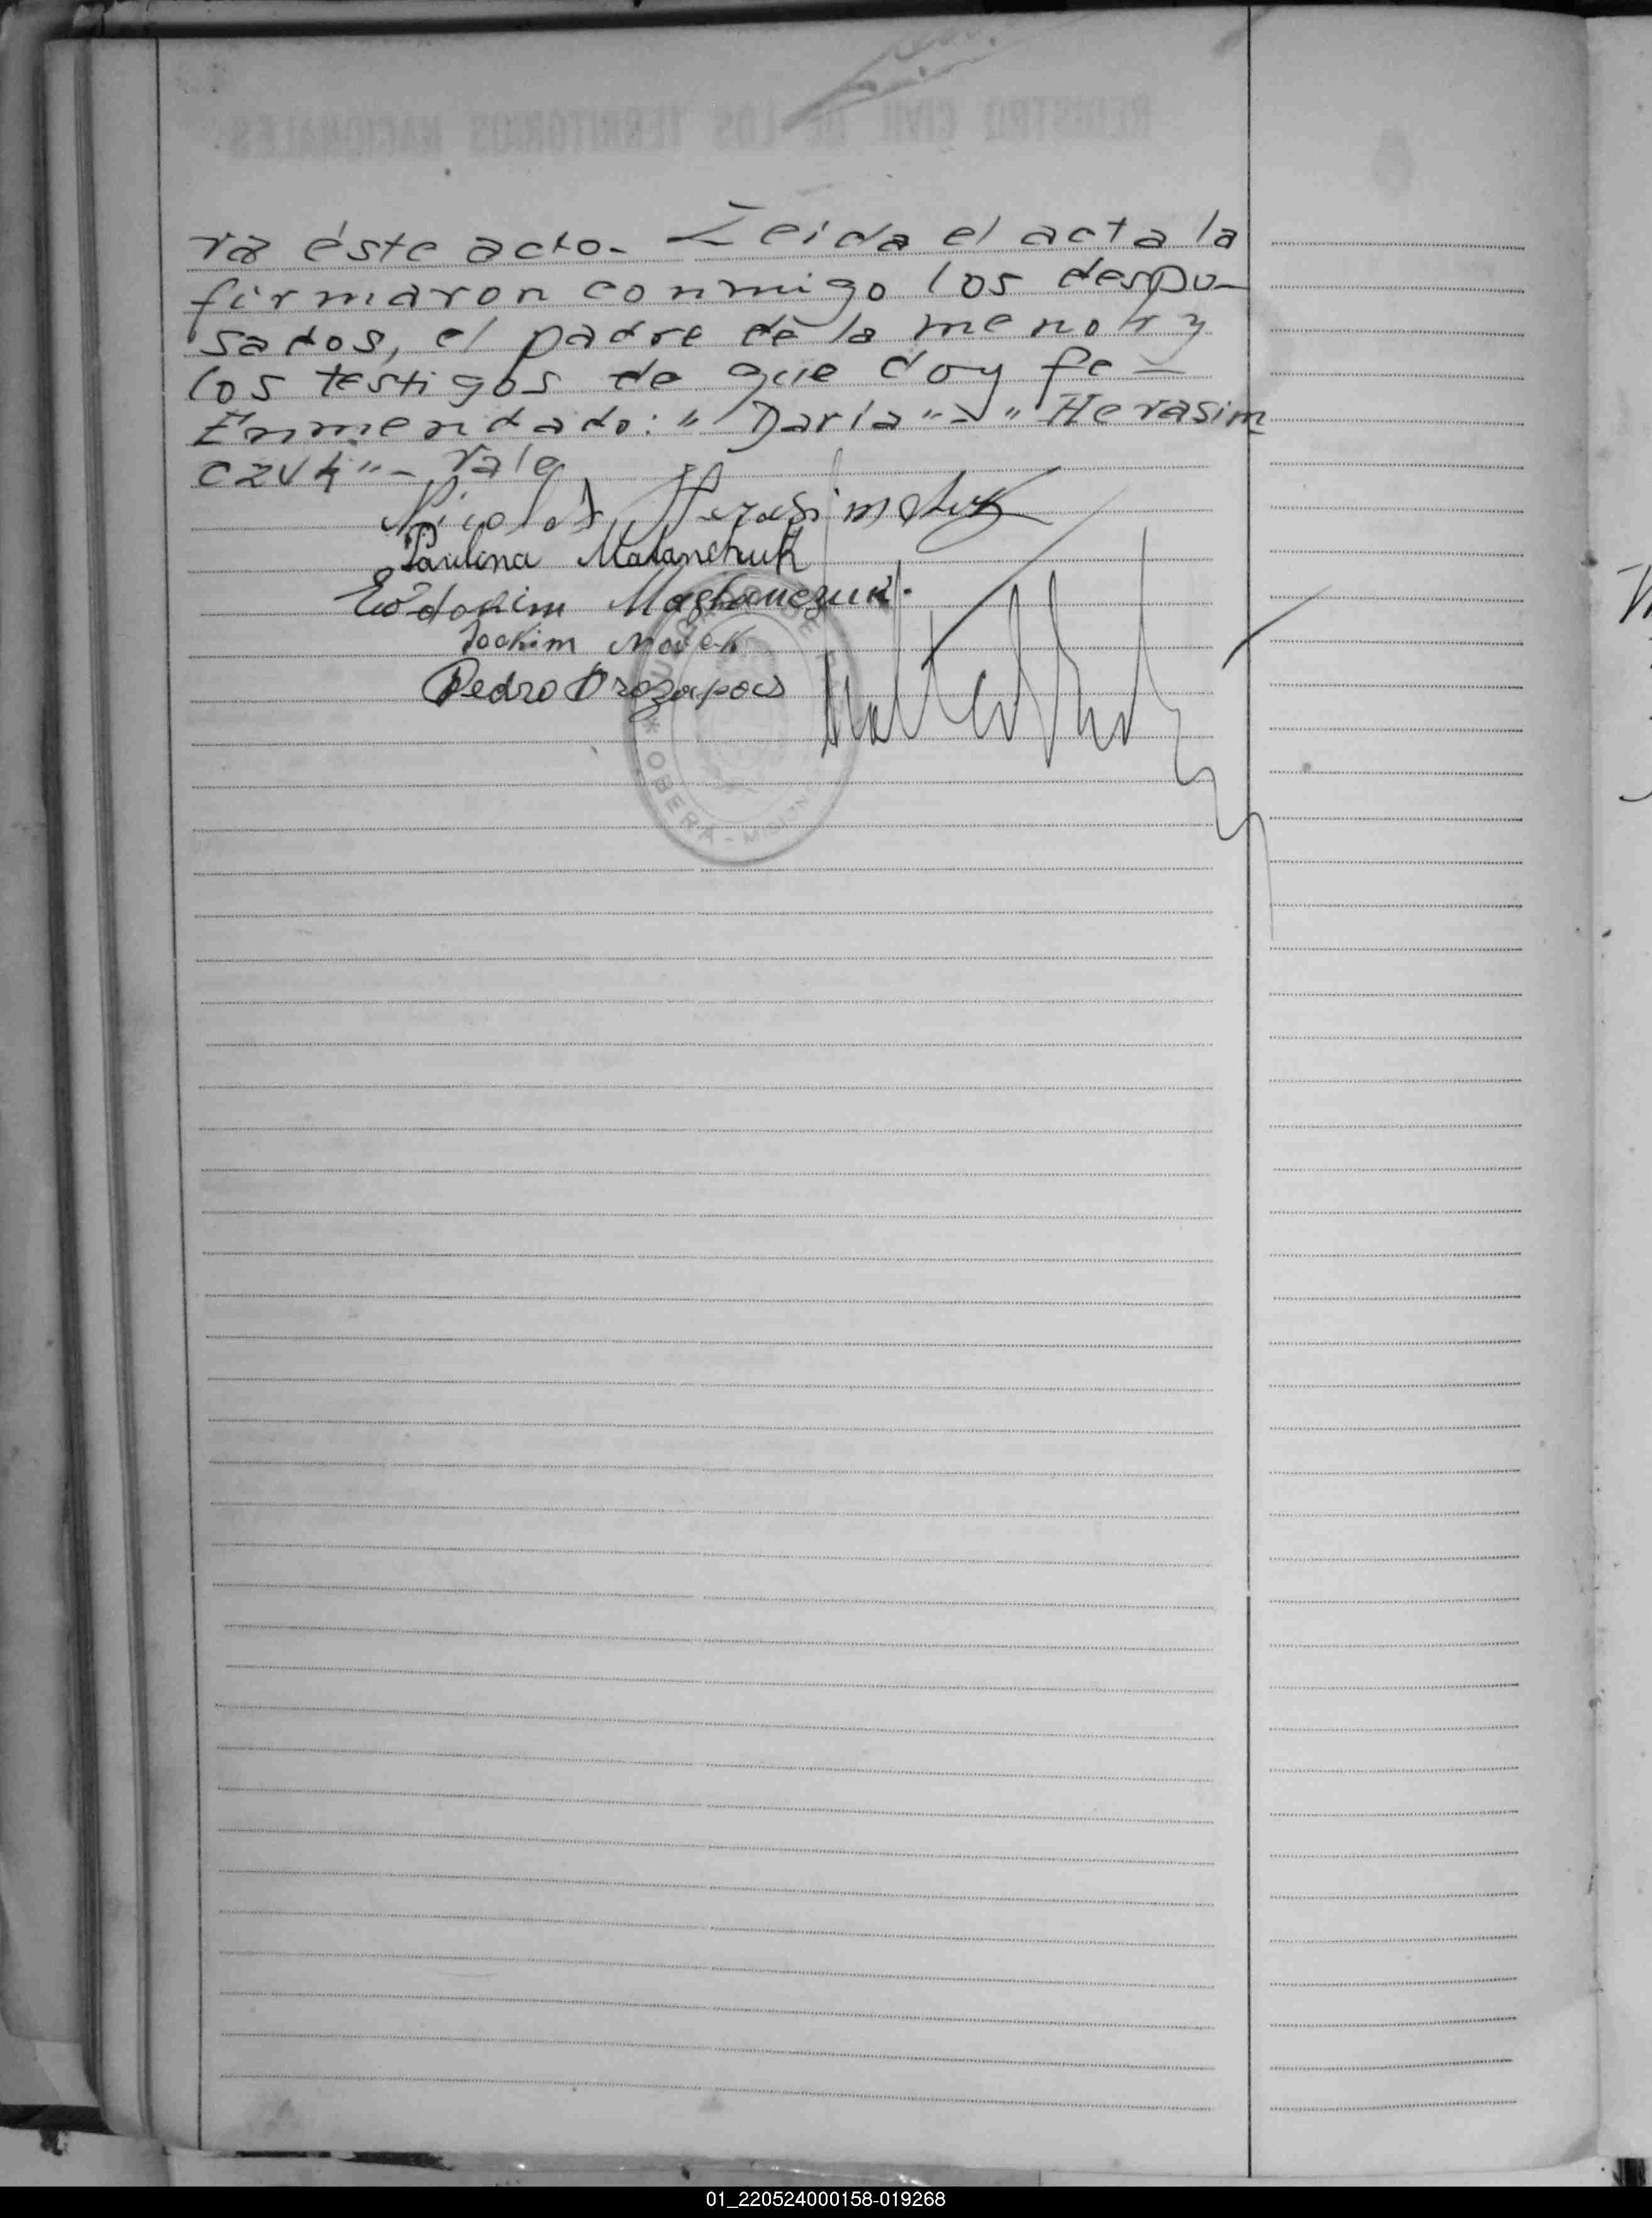 REGISTRO CIVIL DE LOS TERRITORIOS NACIONALES
ra éste acto.- Leida el acta la
firmaron conmigo los despo-
sados, el padre de la menor y
los testigos de que doy fe -
Enmendado: "Daria" - "Herasim
czuk" - Vale
Nicolas Herasimchuk
Paulina Malanchuk
Joakim Novak
Pedro
* OBERÁ - MISIONES
01_220524000158-019268